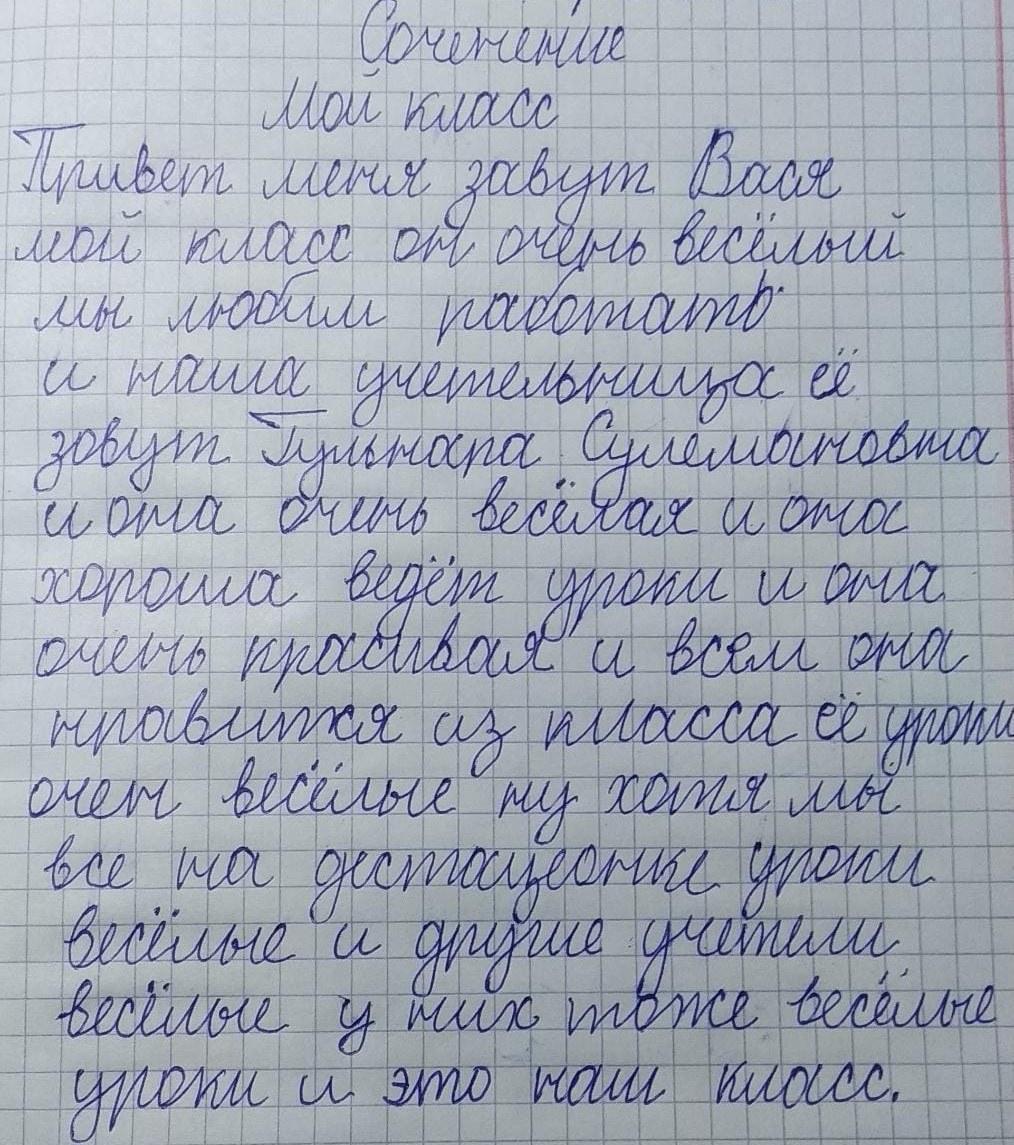 Соченение
Мой класс
Привет меня завут Вася
мой класс он очень весёлый
мы любим работать
и наша учетельница её
зовут Гульнара Сулемановна
и она очень весёлая и она
хороша ведёт уроки и она
очень красивая и всем она
нравится из класса её уроки
очен весёлые ну хотя мы
все на дестационке уроки
весёлые и другие учетели
весёлые у них тоже весёлые
уроки и это наш класс.